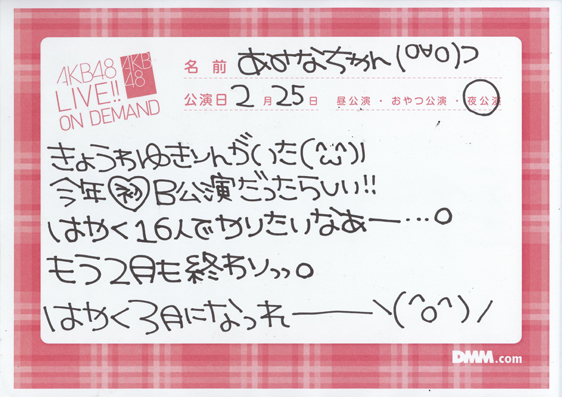 AKB48
LIVE!!
ON DEMAND
AKB
48
名前 あみなちゃん(o∀o)つ
公演日 2月25日 昼公演・おやつ公演・夜公演
きょうわゆきりんがいた(^ω^)ノ
今年初B公演だったらしい!!
はやく16人でやりたいなあー…。
もう2月も終わりっっ。
はやく3月になっれ――ヽ(^o^)ノ
DMM.com